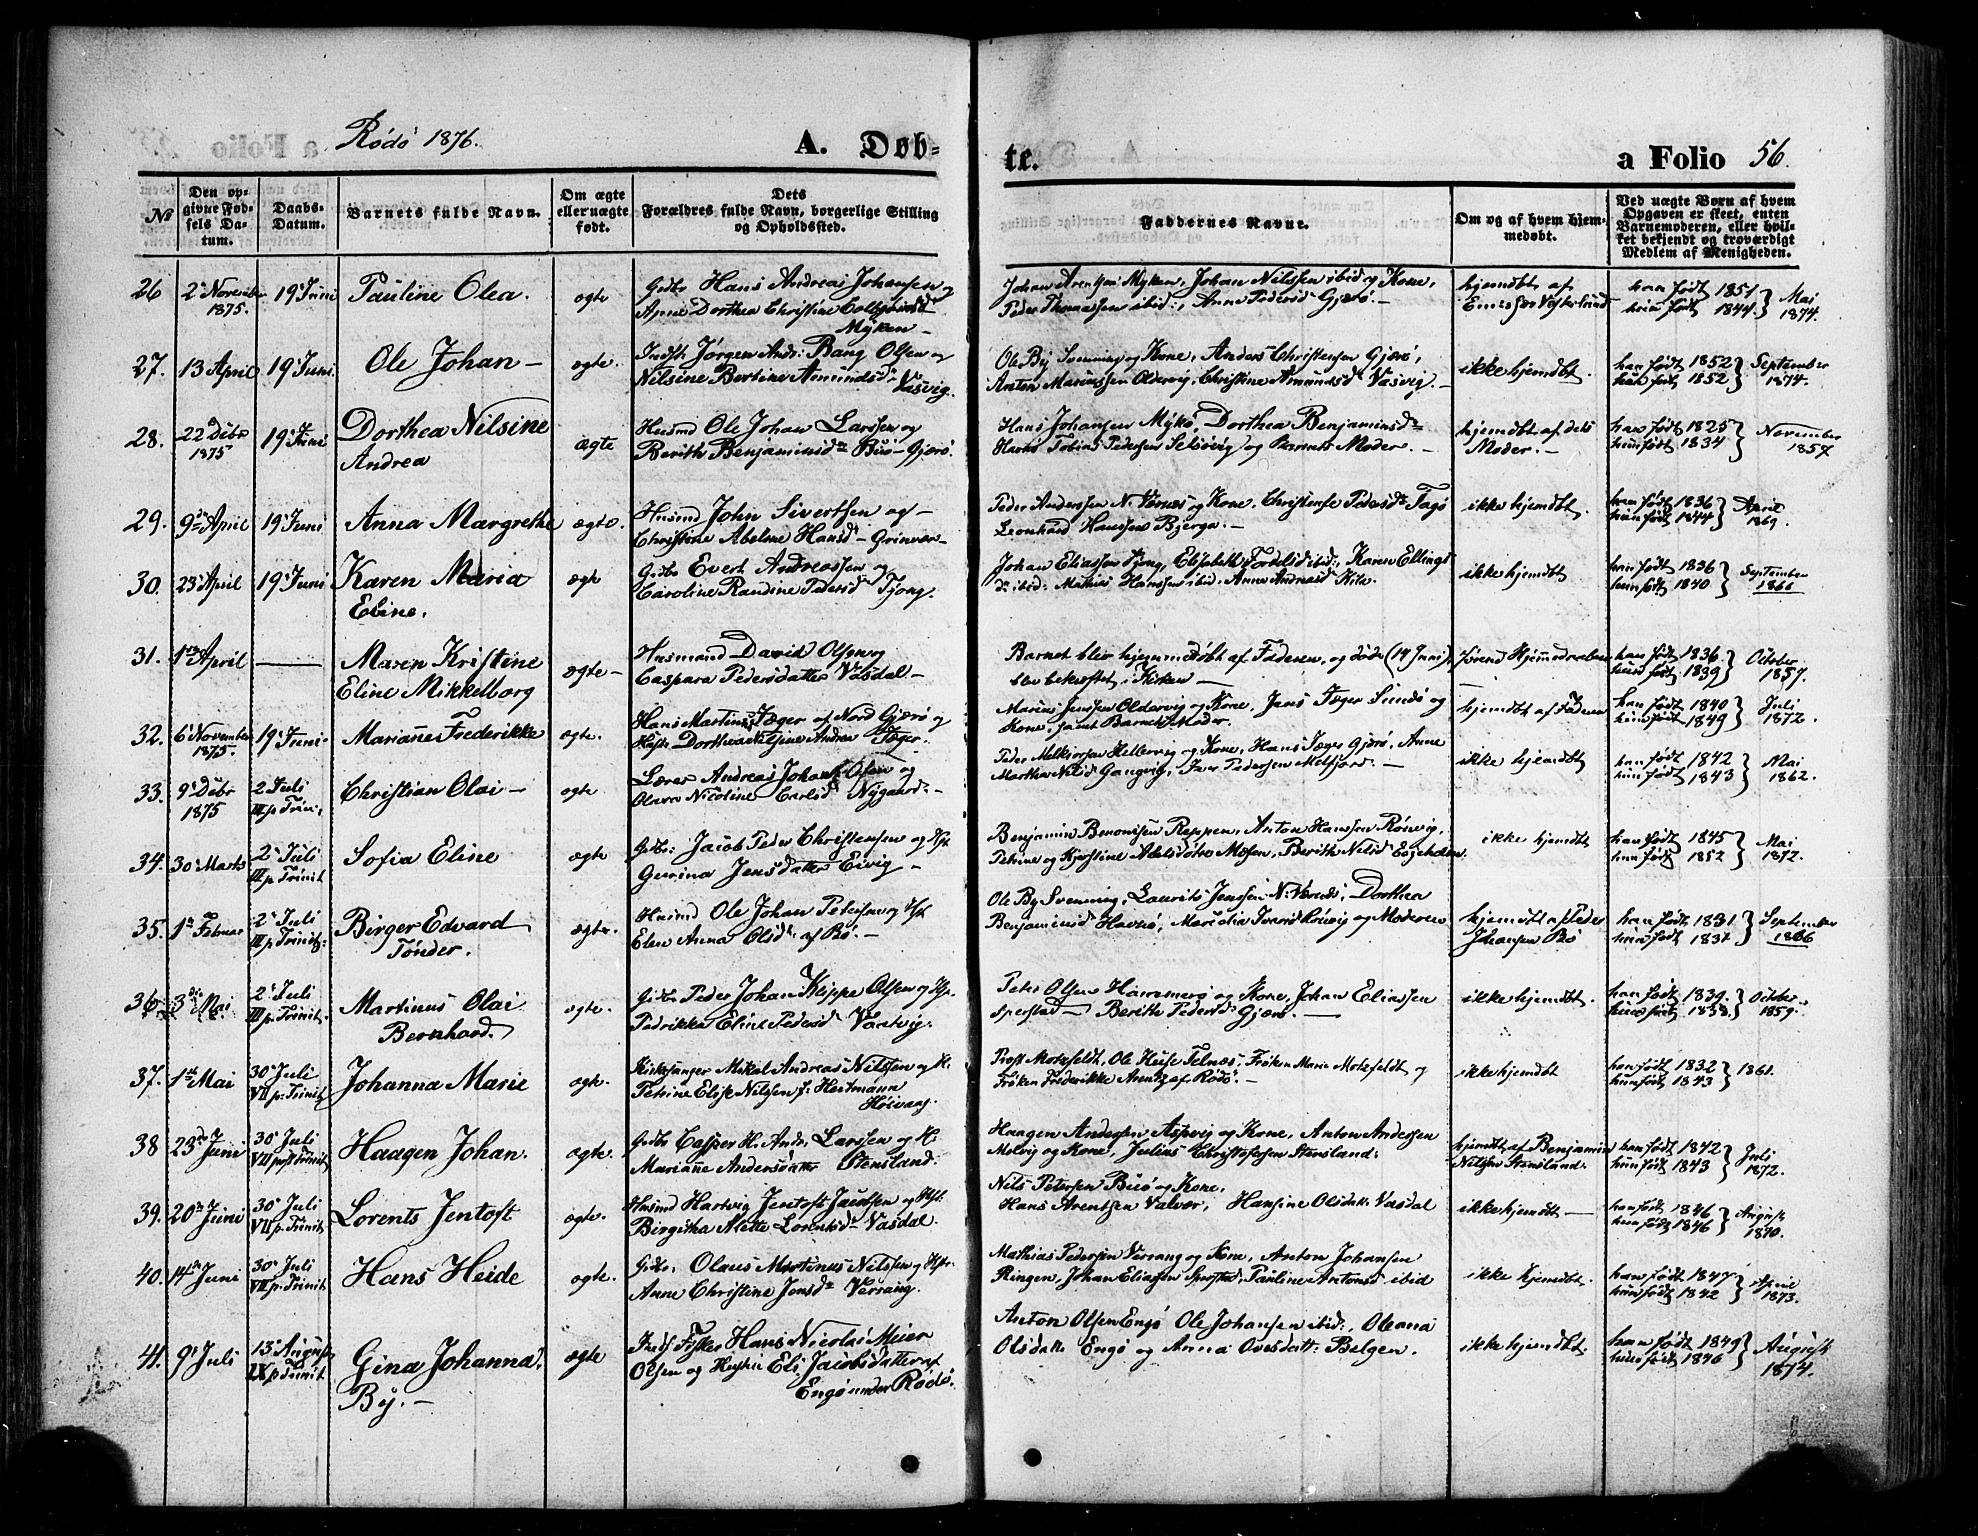 Rødø 1876.
A. Døb-
te.
a Folio 56.
№
Den op-
givne Fød-
sels Da-
tum.
Daabs-
Datum.
Barnets fulde Navn.
Om ægte
eller uægte
født.
Dets
Forældres fulde Navn, borgerlige Stilling
og Opholdssted.
Faddernes Navne.
Om og af hvem hjem-
medøbt.
Ved uægte Børn af hvem
Opgaven er skeet, enten
Barnemoderen, eller hvil-
ket bekjendt og troværdigt
Medlem af Menigheden.
26 2 November 1875. 19 Juni Pauline Olea. ægte
Gdbr Hans Andreas Johansen og
Dorthea Christine
Myken
Johan Arentsen Myken, Johan Nilssen ibid og Kone,
Peder Thomassen ibid:, Anne Pedersd Gjærø.
hjemdbt af
han født 1851
hun født 1844
Mai
1874.
27. 13 April 19 Juni. Ole Johan ægte.
Indst. Jørgen Andr: Bang Olsen og
Nilsine Bertine Amundsd
Vasvig.
Ole By Svenning og Kone, Anders Christensen Gjærø,
Anton Mariussen Oldervig, Christine Amundsd Vasvig.
ikke hjemdbt.
han født 1852
hun født 1852
September
1874.
28. 22 Dcbr 1875 19 Juni Dorthea Nilsine
Andrea ægte
Husmd Ole Johan Larssen og
Berith Benjaminsd Buø - Gjærø.
Hans Johansen Mykø, Dorthea Benjaminsd
Tobias Pedersen Selsvig og Barnets Moder.
hjemdbt af dets
Moder.
han født 1825
hun født 1834
November
1857
29. 9 April 19 Juni Anna Margrethe ægte.
Husmd John Sivertsen og
Christine Abelone Hansd - Grinvær
Peder Andersen N. Værnes og Kone, Christense Pedersd
Leonhard Hanssen Bjerga.
ikke hjemdbt.
han født 1836
hun født 1844
April
1869.
30. 23 April 19 Juni Karen Maria
Eline. ægte
Gdbr Evert Andreassen og
Caroline Randine Pedersd Tjong.
Johan Eliassen Tjong, Elisabeth ibid:, Karen Ellings
d ibid: Mathias Hanssen ibid: Anne Andreasd Kila.
ikke hjemdbt
han født 1836
hun født 1840
September
1866
31. 1 April Maren Kristine
Eline Mikkelborg ægte
Husmand David Olsen og
Caspara Pedersdatter Vasdal
Barnet blev hjemmedøbt af Faderen, og døde (14 Juni),
blev bekræftet i Kirken
han født 1836
hun født 1839
October
1857.
32. 6 November 1875. 19 Juni. Mariane Frederikke ægte.
Hans Martinus Jæger af Nord Gjærø og
Hustr Dorthea Nilsine Andrea Jæger.
Marius Jenssen Oldervig og Kone, Jens Jæger Sundø og
Kone, samt Barnets Moder.
hjemdbt af Faderen
han født 1840
hun født 1849
Juli
1872.
33. 9 Dcbr 1875 2 Juli III p. Trin: Christian Olai ægte
Lærer Andreas Johan Olsen og
Olava Nicoline Carlsd Nygaard.
Peder Melkersen Hellervig og Kone, Hans Jæger Gjærø, Anne
Martha Nilsd Gangvig, Iver Pedersen Melfjord.
ikke hjemdbt
han født 1842
hun født 1843
Mai
1862.
34. 30 Marts 2 Juli III p Trinit Sofia Eline ægte
Gdbr: Jacob Peder Christensen og Hst
Gurina Jensdatter Eivig
Benjamin Benonisen Reppen, Anton Hanssen Rønvig,
Petrine og Kjerstine Abelsdøtre Mosen, Berith Nilsd
ikke hjemdbt
han født 1845
hun født 1852
Mai
1872.
35. 1 Februar 2 Juli III p. Trinit: Birger Edvard
Tønder. ægte.
Husmd Ole Johan Petersen og Hst
Elen Anna Olsd: af Bø.
Ole By Svenning, Laurits Jenssen N. Værnes, Dorthea
Benjaminsd Havnø, og Moderen
hjemdbt af Peder
Johansen Bø
han født 1831
hun født 1831
September
1866
36. 3 Mai 2 Juli III p. Trinit. Martinus Olai
Bernhard. ægte.
Gdbr Peder Johan Klippe Olsen og Hst.
Pedrikka Eline Pedersd Vaatvig.
Peter Olsen Hammerø og Kone, Johan Eliassen
Sperstad Berith Pedersd Gjærø.
ikke hjemdbt.
han født 1839.
hun født 1838.
October
1859.
37. 1 Mai 30 Juli VII p. Trinit. Johanna Marie ægte.
Kirksanger Mikal Andreas Nilssen og H.
Petrine Elise Nilssen f. Heitmann
Høivaag.
Prost Motzfeldt, Ole Huse Telnæs, Frøken Marie Motzfeldt og
Frøken Frederikke Arentz af Rødø.
ikke hjemdbt
han født 1832
hun født 1843
1861.
38 23 Juni 30 Juli VII post Trinit Haagen Johan. ægte.
Gdbr Casper H. Andr. Larssen og H.
Mariane Andersdatter Stensland.
Haagen Andersen Aspvig og Kone, Anton Andersen
Melvig og Kone, Julius Christofersen Stensland.
hjemdbt af Benjamin
Nilssen Stensland.
han født 1842
hun født 1843
Juli
1872.
39. 20 Juni 30 Juli VII p. Trinit Lorents Jentoft ægte.
Husmd Hartvig Jentoft Jacobsen og Hst.
Birgitha Alette Lorentsd Vasdal.
Nils Petersen Buø og Kone,
Hans Arentzen Valvær, Hansine Olsdatr: Vasdal
ikke hjemdbt
han født 1846
hun født 1846
August
1870.
40. 14 Juni 30 Juli VII p. Trinit Hans Heide ægte.
Gdbr. Olaus Martinus Nilsen og Hst.
Anne Christine Jonsd Værrang.
Mathias Pedersen Værrang og Kone, Anton Johansen
Ringen, Johan Eliassen Sperstad, Pauline Antonsd ibid
ikke hjemdbt.
han født 1847
hun født 1842
April
1873.
41. 9 Juli 13 August IX p Trinit Gina Johanna
By. ægte
Indst Fisker Hans Nicolai Meier
Olsen og Hustru Eli Jacobsdatter af
Engø under Rødø.
Anton Olsen Engø Ole Johansen ibid:, Oleana
Olsdatr Engø og Anna Ovesdatt: Bolgen.
ikke hjemdbt.
han født 1849
hun født 1846
August
1874.